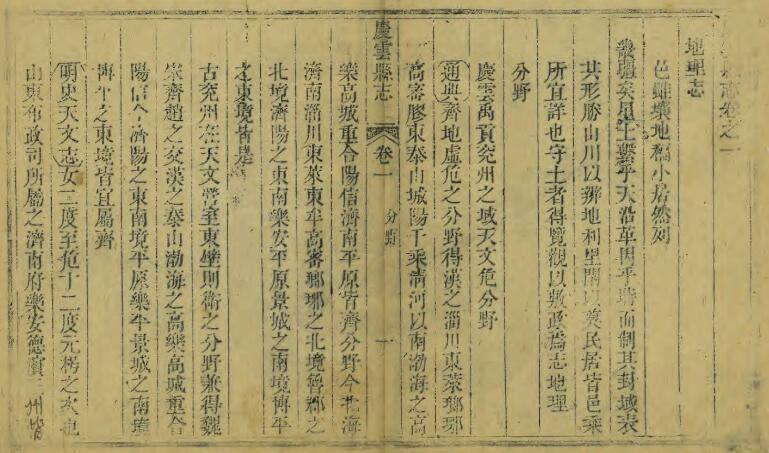 志卷之一
地理志
邑雖壤地褊小居然列
畿疆矣星土繫乎天沿革因乎時而制其封域表
其形勝山川以辨地利里閈以奠民居皆邑乘
所宜詳也守土者得覽觀以敷政焉志地理
分野
慶雲禹貢兗州之域天文危分野
通典齊地虛危之分野得漢之淄川東萊瑯琊
高密膠東泰山城陽千乘淸河以南渤海之高
慶雲縣志
卷一
分野
一
樂高城重合陽信濟南平原皆齊分野今北海
濟南淄川東萊東牟高密瑯琊之北境魯郡之
北境濟陽之東南樂安平原景城之南境博平
之東境皆是
古兗州在天文營室東壁則衛之分野兼得魏
宋齊趙之交漢之泰山渤海之高樂高城重合
陽信今濟陽之東南境平原樂安景城之南境
博平之東境皆宜屬齊
明史天文志女二度至危十二度元枵之次也
山東布政司所屬之濟南府樂安德濱三州皆